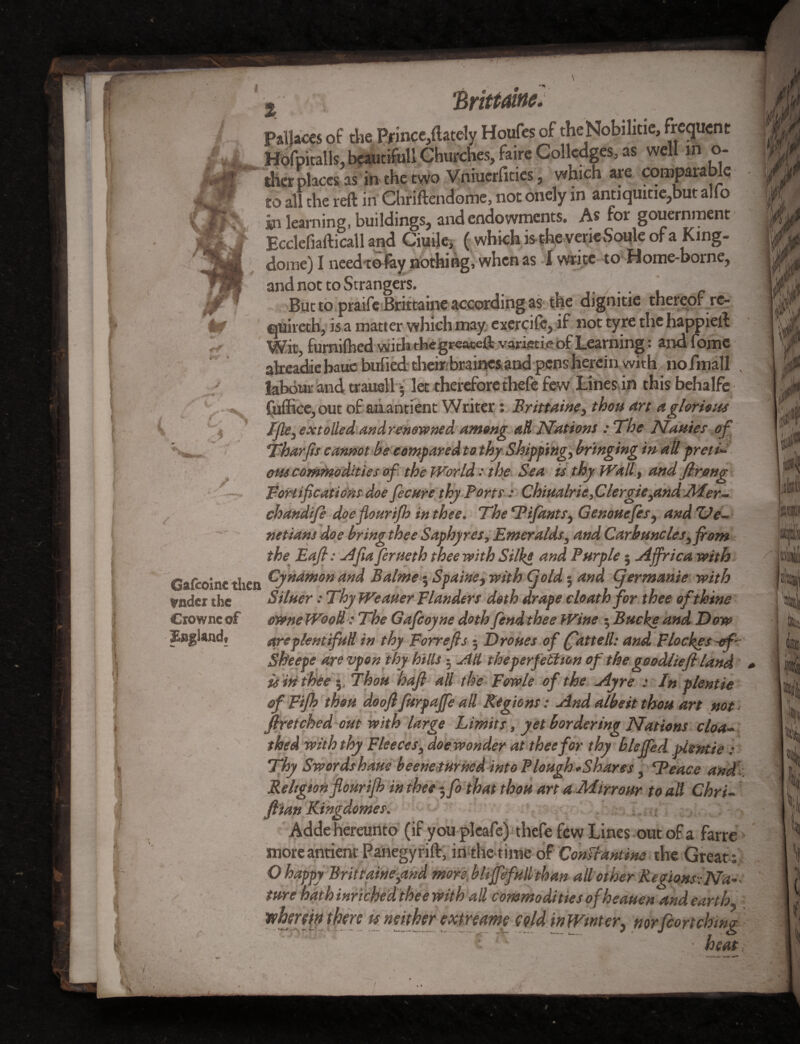 2 Brittaine.
Pallaces of the Prince,ſtately Houſes of the Nobilitie, frequent
Hoſpitalls, beautifull Churches, faire Colledges, as well in o-
ther places as in the two Vniuerſities, which are comparable
to all the reſt in Chriſtendome, not onely in antiquitie,but alſo
in learning, buildings, and endowments. As for gouernment
Eccleſiaſticall and Ciuile, ( which is the verie Soule of a King-
dome) I need to ſay nothing, when as I write to Home-borne,
and not to Strangers.
But to praiſe Brittaine according as the dignitie thereof re-
quireth, is a matter which may exerciſe, if not tyre the happieſt
Wit, furniſhed with the greateſt varietie of Learning: and ſome
alreadie haue buſied their braines and pens herein with no ſmall
labour and trauell; let therefore theſe few Lines in this behalfe
ſuffice, out of an antient Writer: Brittaine, thou art a glorious
Iſle, extolled and renowned among all Nations : The Nauies of
Tharſis cannot be compared to thy Shipping, bringing in all preti-
ous commodities of the World : the Sea is thy Wall, and ſtrong
Fortifications doe ſecure thy Ports : Chiualrie,Clergie,and Mer-
chandiſe doe flouriſh in thee. The Piſants, Genoueſes, and Ve-
netians doe bring thee Saphyres, Emeralds, and Carbuncles, from
the Eaſt: Aſia ſerueth thee with Silke and Purple; Affrica with
Cynamon and Balme; Spaine, with Gold; and Germanie with
Siluer : Thy Weauer Flanders doth drape cloath for thee of thine
owne Wooll : The Gaſcoyne doth ſend thee Wine ; Bucke and Dow
are plentifull in thy Forreſts ; Droues of Cattell: and Flockes of
Sheepe are vpon thy hills ; All the perfection of the goodlieſt land
is in thee ; Thou haſt all the Fowle of the Ayre : In plentie
of Fiſh thou dooſt ſurpaſſe all Regions: And albeit thou art not
ſtretched out with large Limits, yet bordering Nations cloa-
thed with thy Fleeces, doe wonder at thee for thy bleſſed plentie :
Thy Swords haue beene turned into Plough-Shares, Peace and
Religion flouriſh in thee ; ſo that thou art a Mirrour to all Chri-
ſtian Kingdomes.
Adde hereunto (if you pleaſe) theſe few Lines out of a farre
more antient Panegyriſt, in the time of Conſtantine the Great:
O happy Brittaine,and more bliſſefull than all other Regions: Na-
ture hath inriched thee with all commodities of heauen and earth,
wherein there is neither extreame cold in Winter, nor ſcortching
heat
Gaſcoine then
vnder the
Crowne of
England,